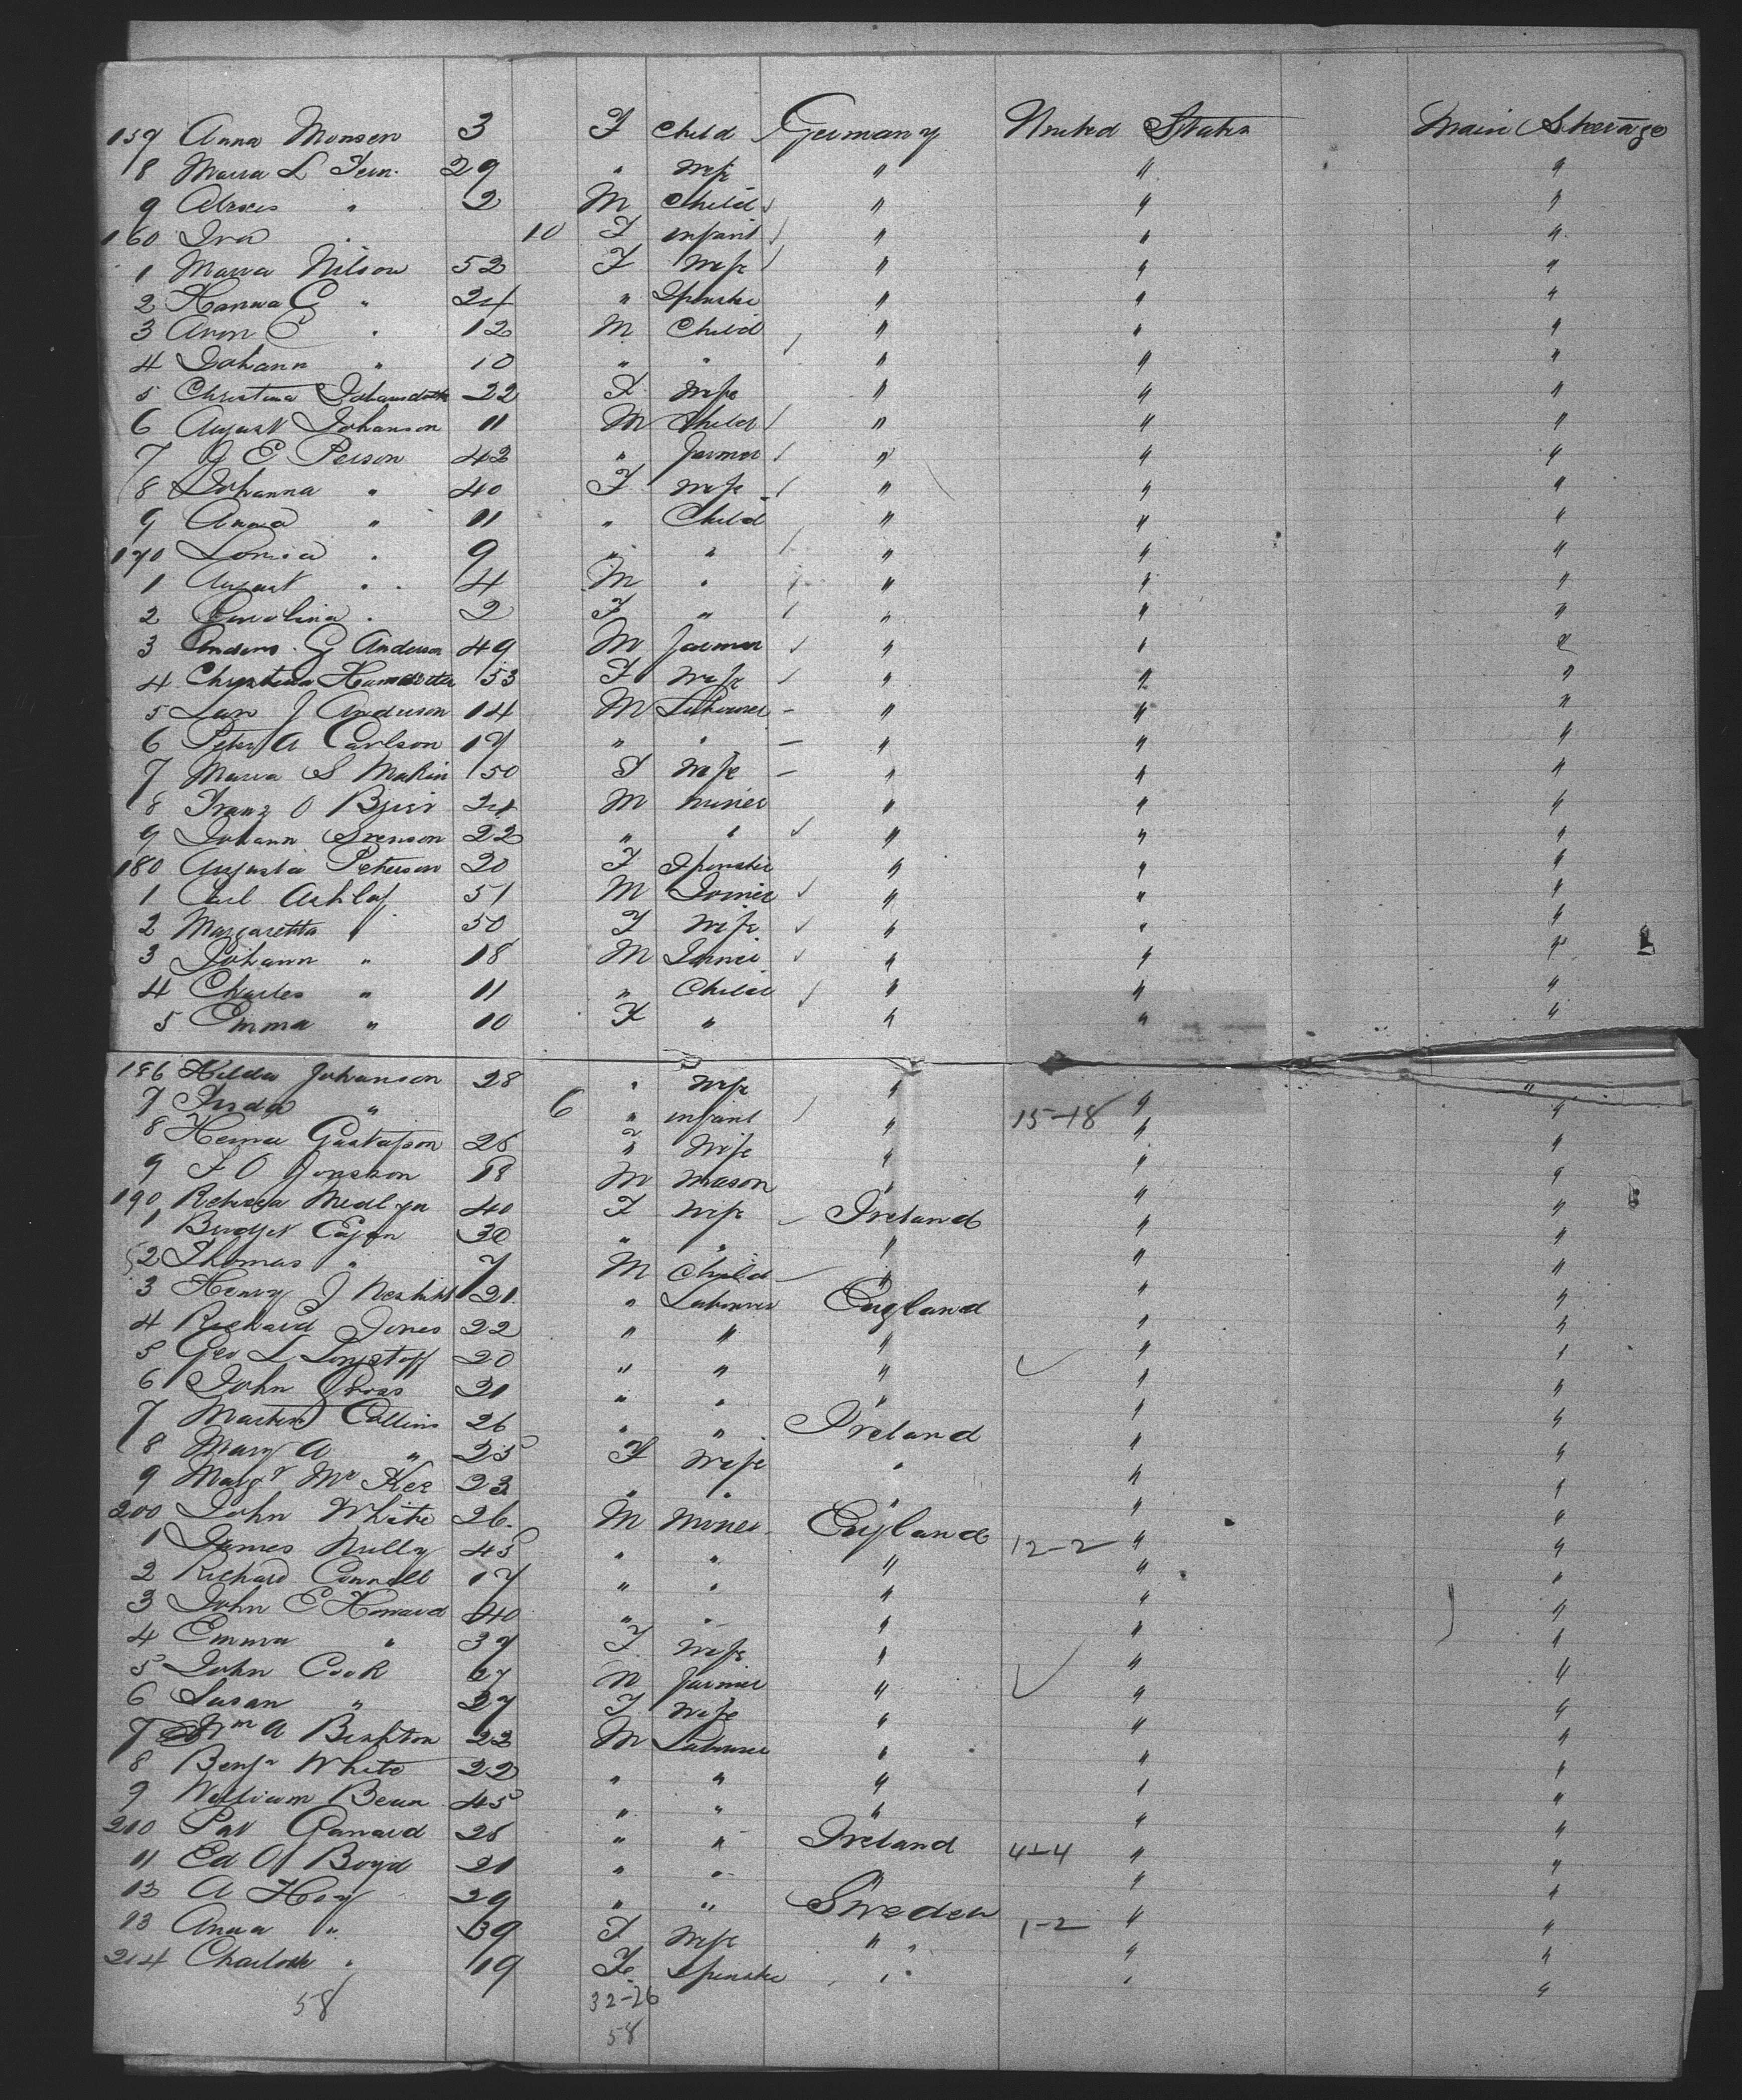 157 Anna Monsen 3 F Child Germany United States Main Steerage
8 Maria L Fern. 29 " Wife " " "
9 " 2 M Child " " "
160 Ira " 10 F infant " " "
1 Maria Nilson 52 F Wife " " "
2 Hanna C " 24 " Spinster " " "
3 Aron E " 12 M Child " " "
4 Johann " 10 " " " " "
5 Christina 22 F Wife " " "
6 August Johanson 11 M Child " " "
7 J E Person 42 " Farmer " " "
8 Johanna " 40 F Wife " " "
9 Anna " 11 " Child " " "
170 Lovisa " 9 " " " " "
1 August " 4 M " " " "
2 Carolina " 2 F " " " "
3 Anders G Anderson 49 M Farmer " " "
4 Christina 53 F Wife " " "
5 Lars J Anderson 14 M Labourer " " "
6 Peter A Carlson 17 " " " " "
7 Maria S Makin 50 F Wife " " "
8 Franz O 24 M Miner " " "
9 Johann Svenson 22 " " " " "
180 Augusta Peterson 20 F Spinster " " "
1 Carl Ashlof 51 M Joiner " " "
2 Margaretta " 50 F Wife " " "
3 Johann " 18 M Joiner " " "
4 Charles " 11 " Child " " "
5 Emma " 10 F " " " "
186 Hilda Johanson 28 " Wife " " "
7 " 6 " infant " 15-18 " "
8 Gustafson 26 " Wife " " "
9 F O Jonsson 18 M Mason " " "
190 Rebecca Medlyn 40 F Wife Ireland " "
1 Bridget Egan 30 " " " " "
2 Thomas " 7 M Child " " "
3 Henry J 21 " Labourer England " "
4 Richard Jones 22 " " " " "
5 Geo L Longstaff 20 " " " " "
6 John Gross 21 " " " " "
7 Martin Collins 26 " " Ireland " "
8 Mary A " 25 F Wife " " "
9 Margt McKee 23 " " " " "
200 John White 26 M Miner England " "
1 James Nully 45 " " " 12-2 " "
2 Richard Connell 17 " " " " "
3 John E Howard 40 " " " " "
4 Emma " 37 F Wife " " "
5 John Cook 27 M Farmer " " "
6 Susan " 27 F Wife " " "
7 Wm A Bishton 22 M Labourer " " "
8 Benjn White 22 " " " " "
9 William Bean 45 " " " " "
210 Pat 25 " " Ireland " "
11 Ed Boyd 21 " " " 4-4 " "
12 A Hoy 29 " " Sweden " "
13 Anna " 39 F Wife " 1-2 " "
214 Charlotte " 19 F Spinster " " "
58 32-26
58